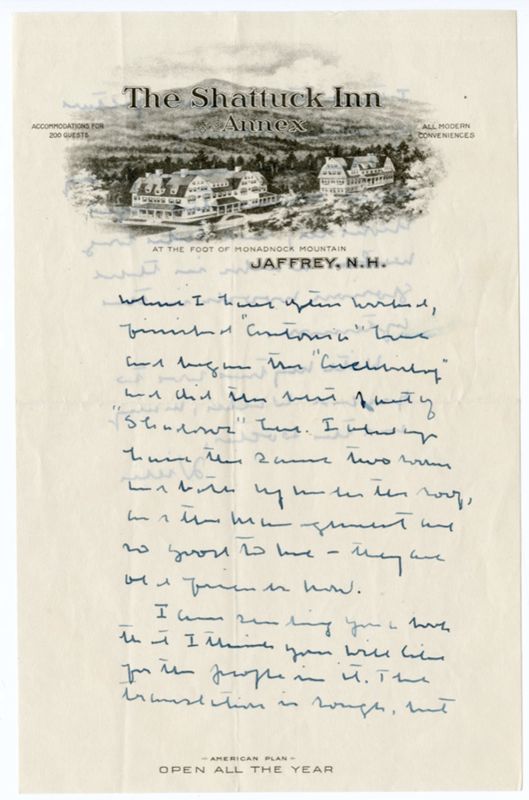 The Shattuck Inn
and Annex
ACCOMMODATIONS FOR
200 GUESTS
ALL MODERN
CONVENIENCES
AT THE FOOT OF MONADNOCK MOUNTAIN
JAFFREY, N.H.
where I have often worked,
finished "Antonia" here
and began the "Archbishop"
and did the best part of
"Shadows" here. I always
have the same two rooms
and bath up under the roof,
and the management are
so good to me – they are
old friends now.
I am sending you a book
that I think you will like
for the people in it. The
translation is rough, but
AMERICAN PLAN
OPEN ALL THE YEAR